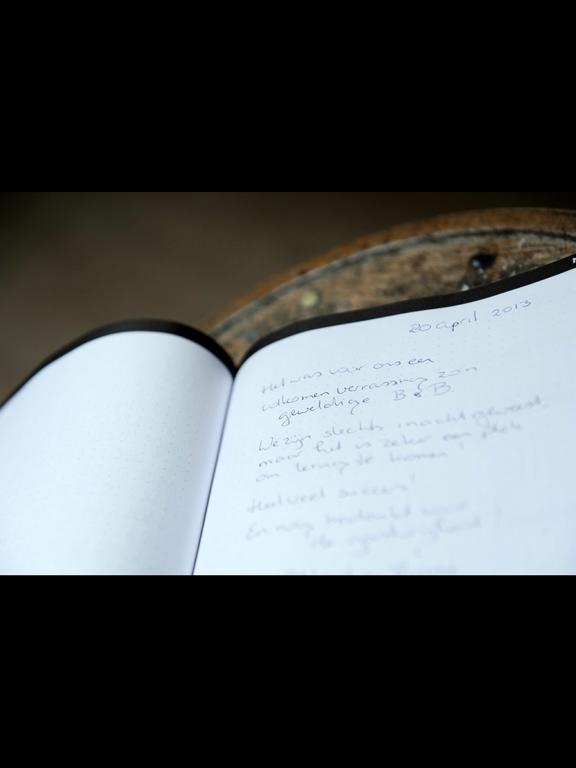 20 april 2013
Het was voor ons een
volkomen verrassing zo'n
geweldige B & B
We zijn slechts 1 nacht geweest,
maar het is zeker een plek
om terug te komen!
Heel veel succes!
En nog bedankt voor
de